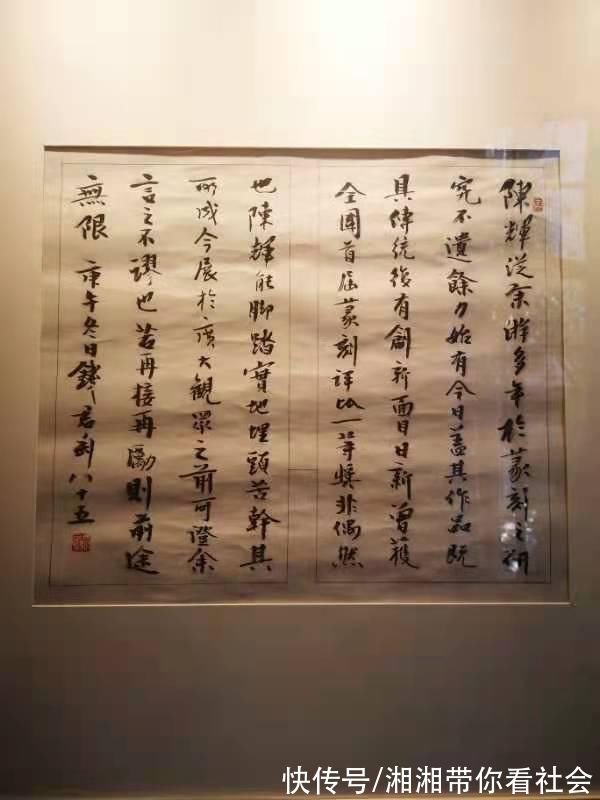 陳輝從余游多年於篆刻之研
究不遺餘力始有今日蓋其作品既
具傳統後有創新面目日新曾獲
全國首屆篆刻評比一等獎非偶然
也陳輝能腳踏實地埋頭苦幹其
所成今展於廣大觀眾之前可證余
言之不謬也若再接再勵則前途
無限 庚午冬日錢君匋八十五
快传号/湘湘带你看社会